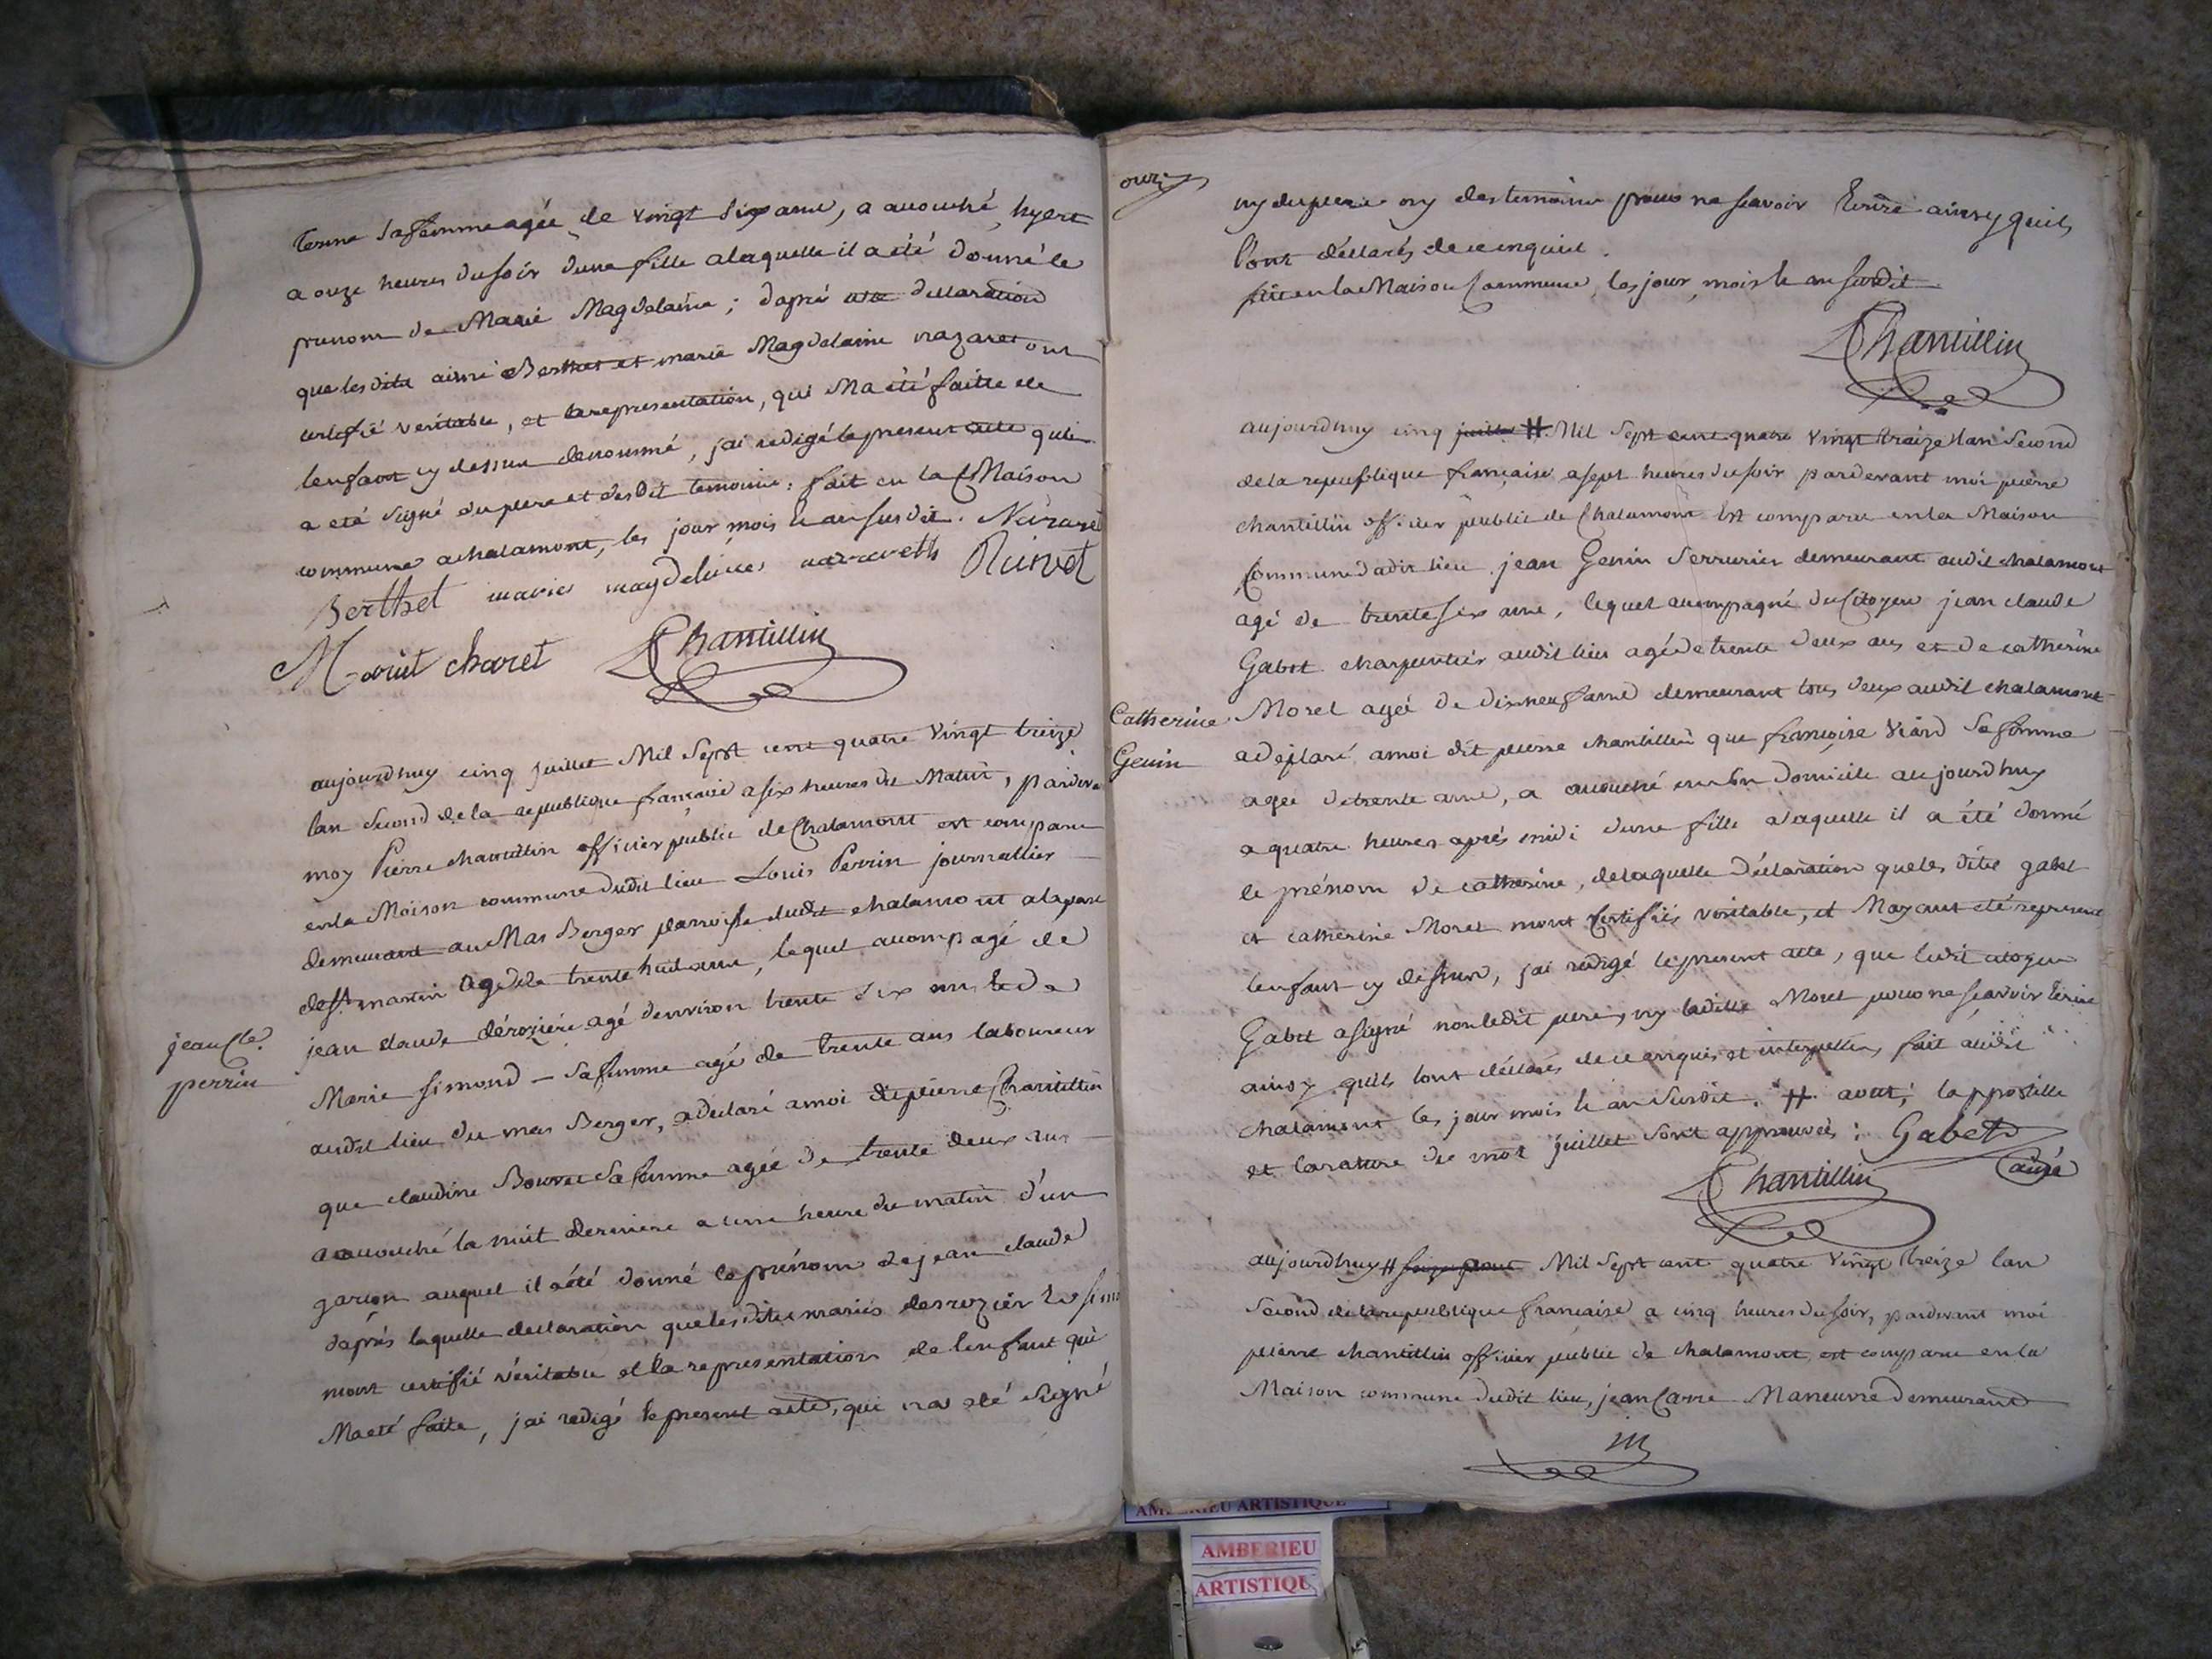 sa femme agée de vingt six ans, a acouché hyert
a onze heures du soir dune fille a laquelle il a été donné le
prenom de Marie Magdelaine ; dapré declaration
que lesdits aimé Berthet et marie Magdelaine nazaret ont
certifié veritable, et la representation, qui Ma été faitte de
lenfant cy dessus denommé, j'ai redigé le present acte qui
a eté signé du pere et desdit temoins : fait en la Maison
commune a chalamont, les jour mois et an susdit. Nazaret
Berthet marie magdeleine nazareth
charet Chantillin
aujourdhuy cinq juillet Mil Sept cent quatre vingt treize
lan second de la republique francaise a six heures du Matin, pardeva
moy Pierre chantillin officier public de Chalamont est comparu
en la Maison commune dudit lieu Louis Perrin journallier
demeurant au Mas Berger parroisse dudit chalamont a la part
de st martin agé de trente huit ans, lequel acompagé de
jean claude dérozière agé denviron trente six ans et de
jean Cle.
perrin
Marie simond - sa femme agé de trente ans laboureur
audit lieu du mas Berger, a declaré a moi dit pierre Chantillin
que claudine Bouvet sa femme agée de trente deux ans
a acouché la nuit derniere a une heure du matin d'un
garçon auquel il a été donné le prénom de jean claude
daprés laquelle declaration que lesdits mariés desrozier et sim
mont certifié véritable et la representation de lenfant qui
Ma eté faite, j'ai redigé le present acte, qui na eté signé
onze
ny du pere ny des temoins pour ne scavoir Ecrire ainsy quils
l'ont déclarés de ce enquis.
fait en la Maison Commune, les jour, mois et an susdit
Chantillin
aujourdhuy cinq juillet # Mil Sept cent quatre vingt treize lan Second
de la republique française a sept heures du soir pardevant moi pierre
chantillin officier public de Chalamont Est comparu en la Maison
Commune dudit lieu jean Genin Serrurier demeurant audit chalamont
agé de trente six ans, lequel acompagné du Citoyen jean claude
Gabet charpentier audit lieu agé de trente deux ans et de catherine
Catherine
Genin
Morel agée de dix neuf ans demeurant tous deux audit chalamont
a déclaré a moi dit pierre chantillin que françoise Viard sa femme
agée de trente ans, a acouché en son Domicile aujourdhuy
a quatre heures aprés midi dune fille a laquelle il a été donné
le prénom de catherine, de laquelle Déclaration que les dits gabet
et catherine Morel mont Certifiés véritable, et Mayant eté represen
lenfant cy dessus, j'ai redigé le present acte, que ledit citoyen
Gabet a signé non ledit pere, ny ladite Morel pour ne scavoir Ecrire
ainsy quils lont déclarés de ce enquis et interpellés, fait audit
chalamont les jour mois et an susdit. # aout, lappostille
et la rature du mot juillet sont approuvés : Gabet
ainé
Chantillin
aujourdhuy # Mil Sept cent quatre vingt treize lan
Second de la republique française a cinq heures du soir, pardevant moi
pierre chantillin officier public de chalamont, est comparu en la
Maison commune dudit lieu, jean Carre Maneuvre demeurant
AMBERIEU ARTISTIQUE
AMBERIEU
ARTISTIQU